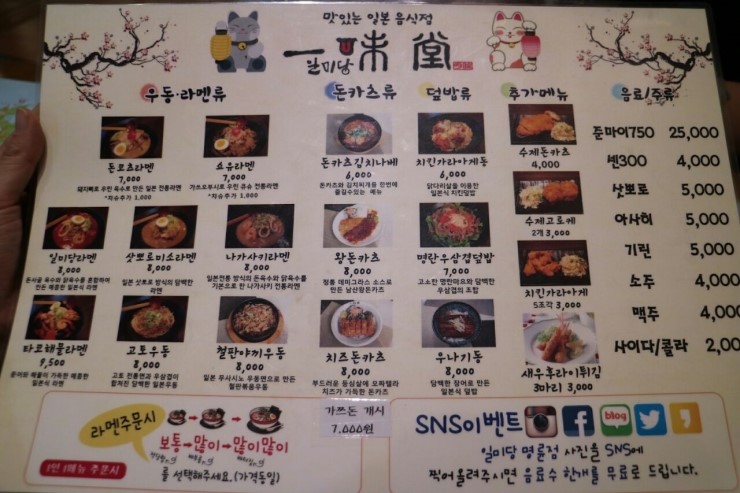 맛있는 일본 음식점
一味堂
일미당
우동·라멘류
돈카츠류
덮밥류
추가메뉴
음료/주류
돈코츠라멘
7,000
돼지뼈로 우린 육수로 만든 일본 전통라멘
*차슈추가 1,000
쇼유라멘
7,000
가쓰오부시로 우린 큐슈 전통라멘
*차슈추가 1,000
돈카츠김치나베
6,000
돈카츠와 김치찌개를 한번에
즐길수있는 메뉴
치킨가라아게동
6,000
닭다리살을 이용한
일본식 치킨덮밥
수제돈카츠
4,000
일미당라멘
8,000
돈사골 육수와 닭육수를 혼합하여
만든 매콤한 일본식 라멘
삿뽀로미소라멘
8,000
일본 삿뽀로 방식의 담백한
라멘
나가사키라멘
8,000
일본전통 방식의 돈육수와 닭육수를
기본으로 한 나가사키 전통라멘
왕돈카츠
8,000
정통 데미그라스 소스로
만든 남산왕돈카츠
명란우삼겹덮밥
7,000
고소한 명란마요와 담백한
우삼겹의 조합
수제고로케
2개 3,000
치킨가라아게
5조각 3,000
타코해물라멘
9,500
문어와 해물이 가득한 매콤한
일본식 라멘
고토우동
8,000
고토 전통면과 우삼겹이
합쳐진 담백한 일본우동
철판야끼우동
8,000
일본 무사시노 우동면으로 만든
철판볶음우동
치즈돈카츠
8,000
부드러운 등심살에 모짜렐라
치즈가 가득한 돈카츠
우나기동
8,000
담백한 장어로 만든
일본식 덮밥
새우후라이튀김
3마리 3,000
준마이750 25,000
센300 4,000
삿뽀로 5,000
아사히 5,000
기린 5,000
소주 4,000
맥주 4,00
사이다/콜라 2,00
라멘주문시
보통→많이→많이많이
를 선택해주세요.(가격동일)
1인 1메뉴 주문시
가쯔돈 개시
7.000원
SNS이벤트
blog
일미당 명륜점 사진을 SNS에
찍어올려주시면 음료수 한개를 무료로 드립니다.